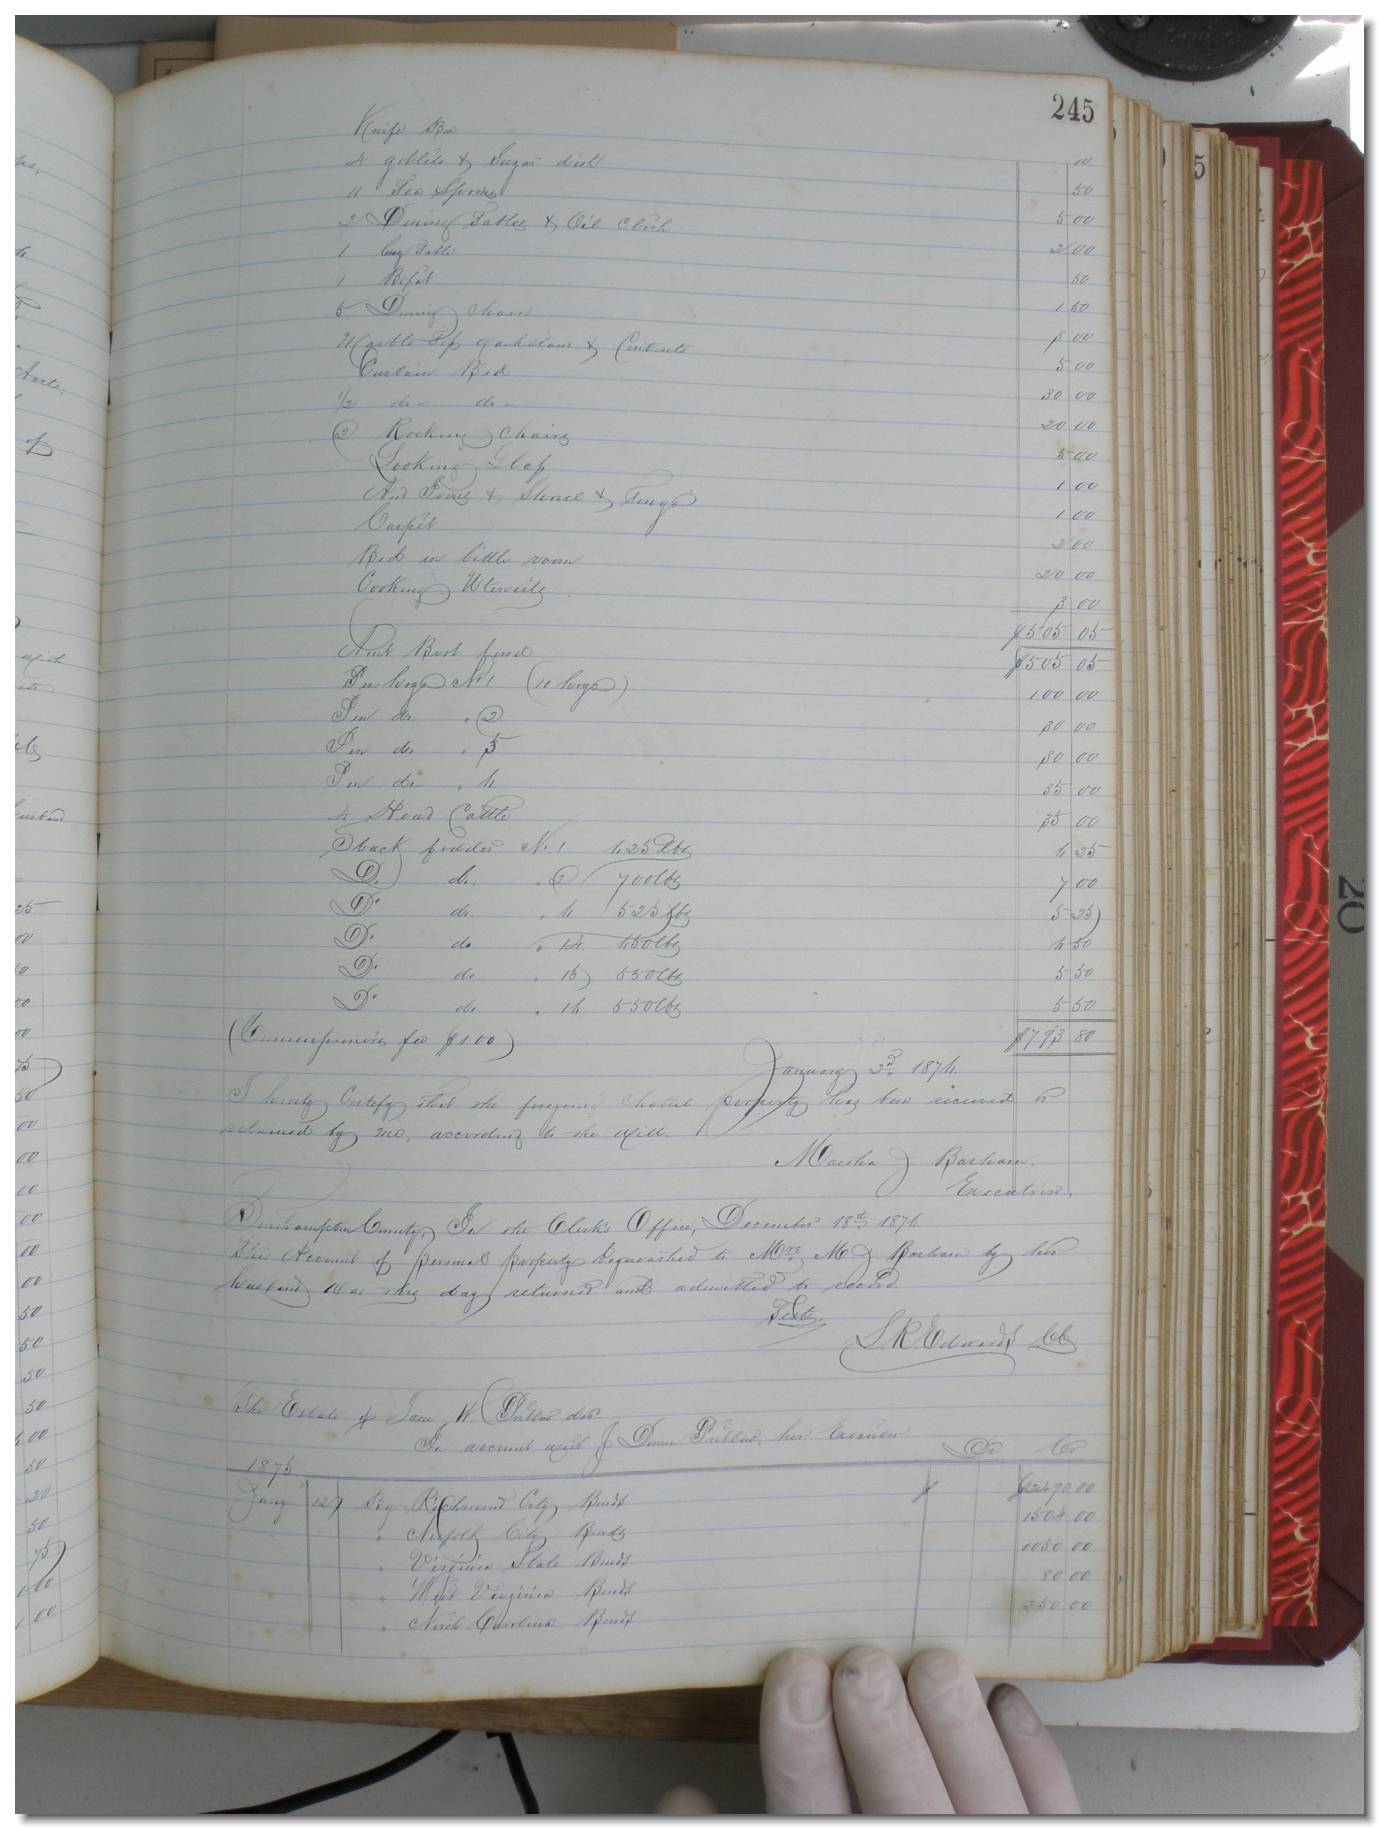 245
Knife Box 10
4 goblets & Sugar dish 50
11 Tea Spoons 5 00
2 Dining Tables & Oil Cloth 2 00
1 Table 50
1 Bofat 1 50
5 Dining Chairs 3 00
Marble Top Washstand & Contents 5 00
Curtain Bed 30 00
1/2 do- do- 20 00
2 Rocking Chairs 5 00
Looking Glass 1 00
And Irons & Shovel & Tongs 1 00
Carpet 2 00
Bed in little room 20 00
Cooking Utensils 3 00
$505 05
Amt Brot forwd $505 05
Pen hogs No 1 (10 hogs) 100 00
Pen do. " 2 30 00
Pen do. " 3 30 00
Pen do- " 4 35 00
4 Head Cattle 35 00
Stack fodder No. 1 425 lbs 4 25
Do. do. " 2 700 lbs 7 00
Do. do. " 525 lbs 5 25
Do. do " 14 450 lbs 4 50
Do. do " 15 550 lbs 5 50
Do. do " 550 lbs 5 50
(Commissioners fee $1.00) $793 80
January 2nd 1874.
I hereby Certify that the foregoing chattel property has been received or
returned by me, according to the will.
Martha J Barham,
Executrix.
Southampton County, In the Clerk's Office, December 18th 1874
This Account of personal property bequeathed to Mrs. M J. Barham by her
husband was this day returned and admitted to record
Teste.
L. R. Edwards Clk
The Estate of Jane W dec
In account with J Dunn her Executor
Dr Cr
1875
Jany 12 By Richmond City Bonds $ $2470.00
" Norfolk City Bonds 1504 00
" Virginia State Bonds 1050 00
" West Virginia Bonds 80 00
" North Carolina Bonds 250 00